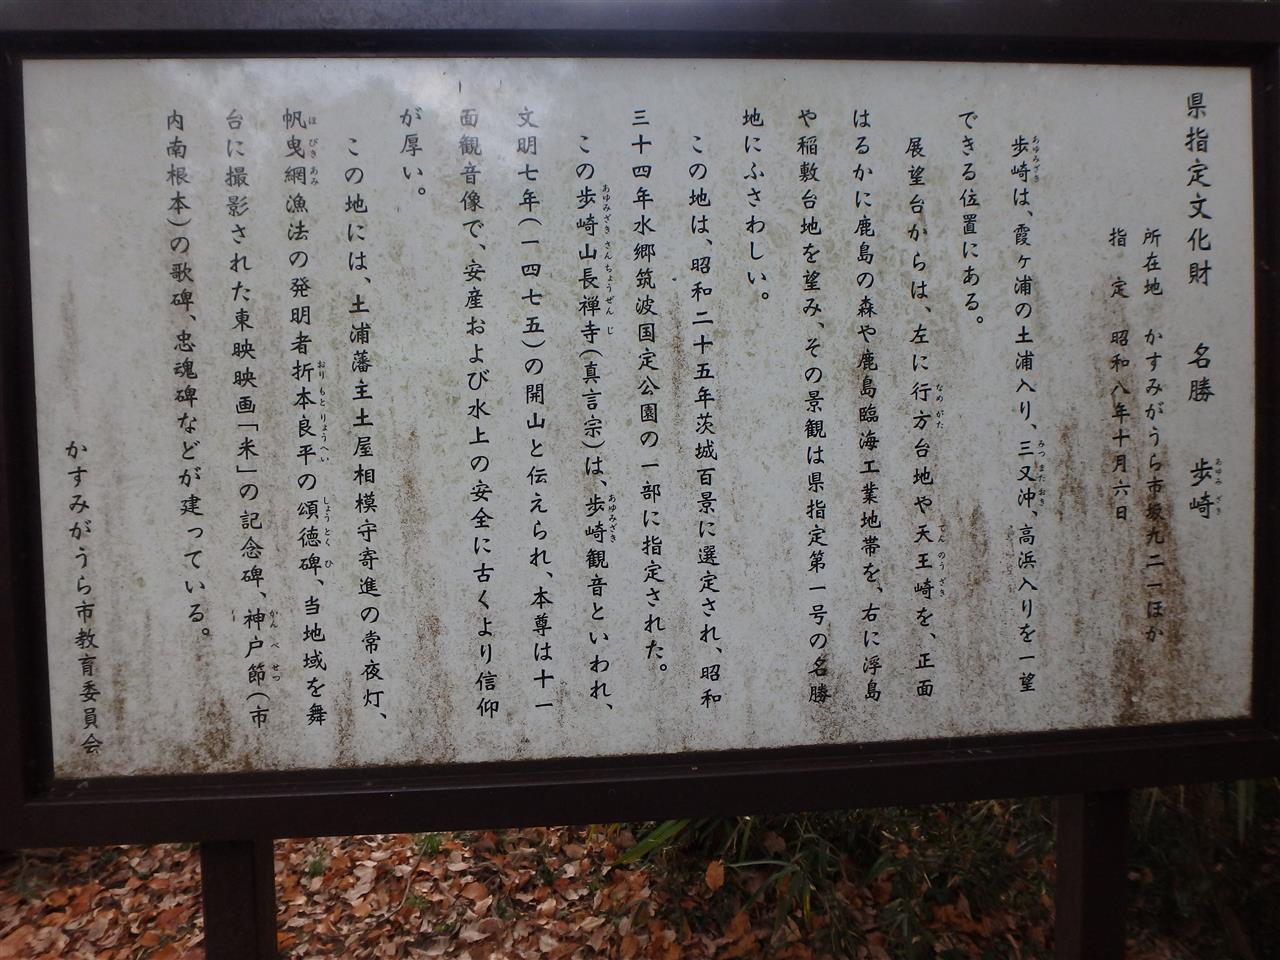 県指定文化財　名勝　歩崎
所在地　かすみがうら市坂九二一ほか
指　定　昭和八年十月六日
歩崎は、霞ヶ浦の土浦入り、三又沖、高浜入りを一望
できる位置にある。
展望台からは、左に行方台地や天王崎を、正面
はるかに鹿島の森や鹿島臨海工業地帯を、右に浮島
や稲敷台地を望み、その景観は県指定第一号の名勝
地にふさわしい。
この地は、昭和二十五年茨城百景に選定され、昭和
三十四年水郷筑波国定公園の一部に指定された。
この歩崎山長禅寺(真言宗)は、歩崎観音といわれ、
文明七年(一四七五)の開山と伝えられ、本尊は十一
面観音像で、安産および水上の安全に古くより信仰
が厚い。
この地には、土浦藩主土屋相模守寄進の常夜灯、
帆曳網漁法の発明者折本良平の頌徳碑、当地域を舞
台に撮影された東映映画「米」の記念碑、神戸節(市
内南根本)の歌碑、忠魂碑などが建っている。
かすみがうら市教育委員会